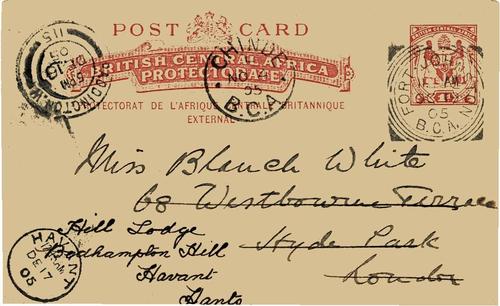 POST CARD
BRITISH CENTRAL AFRICA
PROTECTORATE
PROTECTORAT DE L'AFRIQUE CENTRALE BRITANNIQUE
EXTERNAL
BRITISH CENTRAL AFRICA
CHINDE
NO 14
05
B.C.A.
FORT
05
B.C.A.
PADDINGTON
S11
DE 16
05
Miss Blanch White
68 Westbourne Terrace
Hyde Park
London
Hill Lodge
Bedhampton Hill
Havant
Hants
HAVANT
DE 17
05